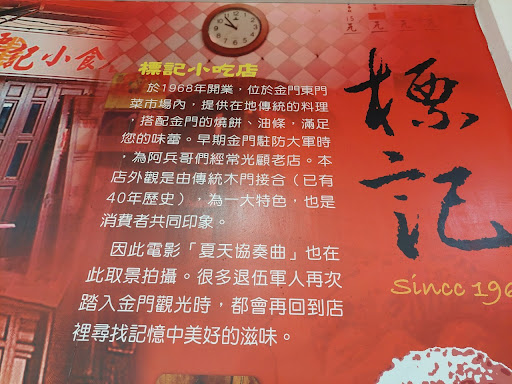 記小食
標記小吃店
於1968年開業，位於金門東門
菜市場內，提供在地傳統的料理
，搭配金門的燒餅、油條，滿足
您的味蕾。早期金門駐防大軍時
，為阿兵哥們經常光顧老店。本
店外觀是由傳統木門接合（已有
40年歷史），為一大特色，也是
消費者共同印象。
因此電影「夏天協奏曲」也在
此取景拍攝。很多退伍軍人再次
踏入金門觀光時，都會再回到店
裡尋找記憶中美好的滋味。
標記
Sincc 196
元 元 元 元